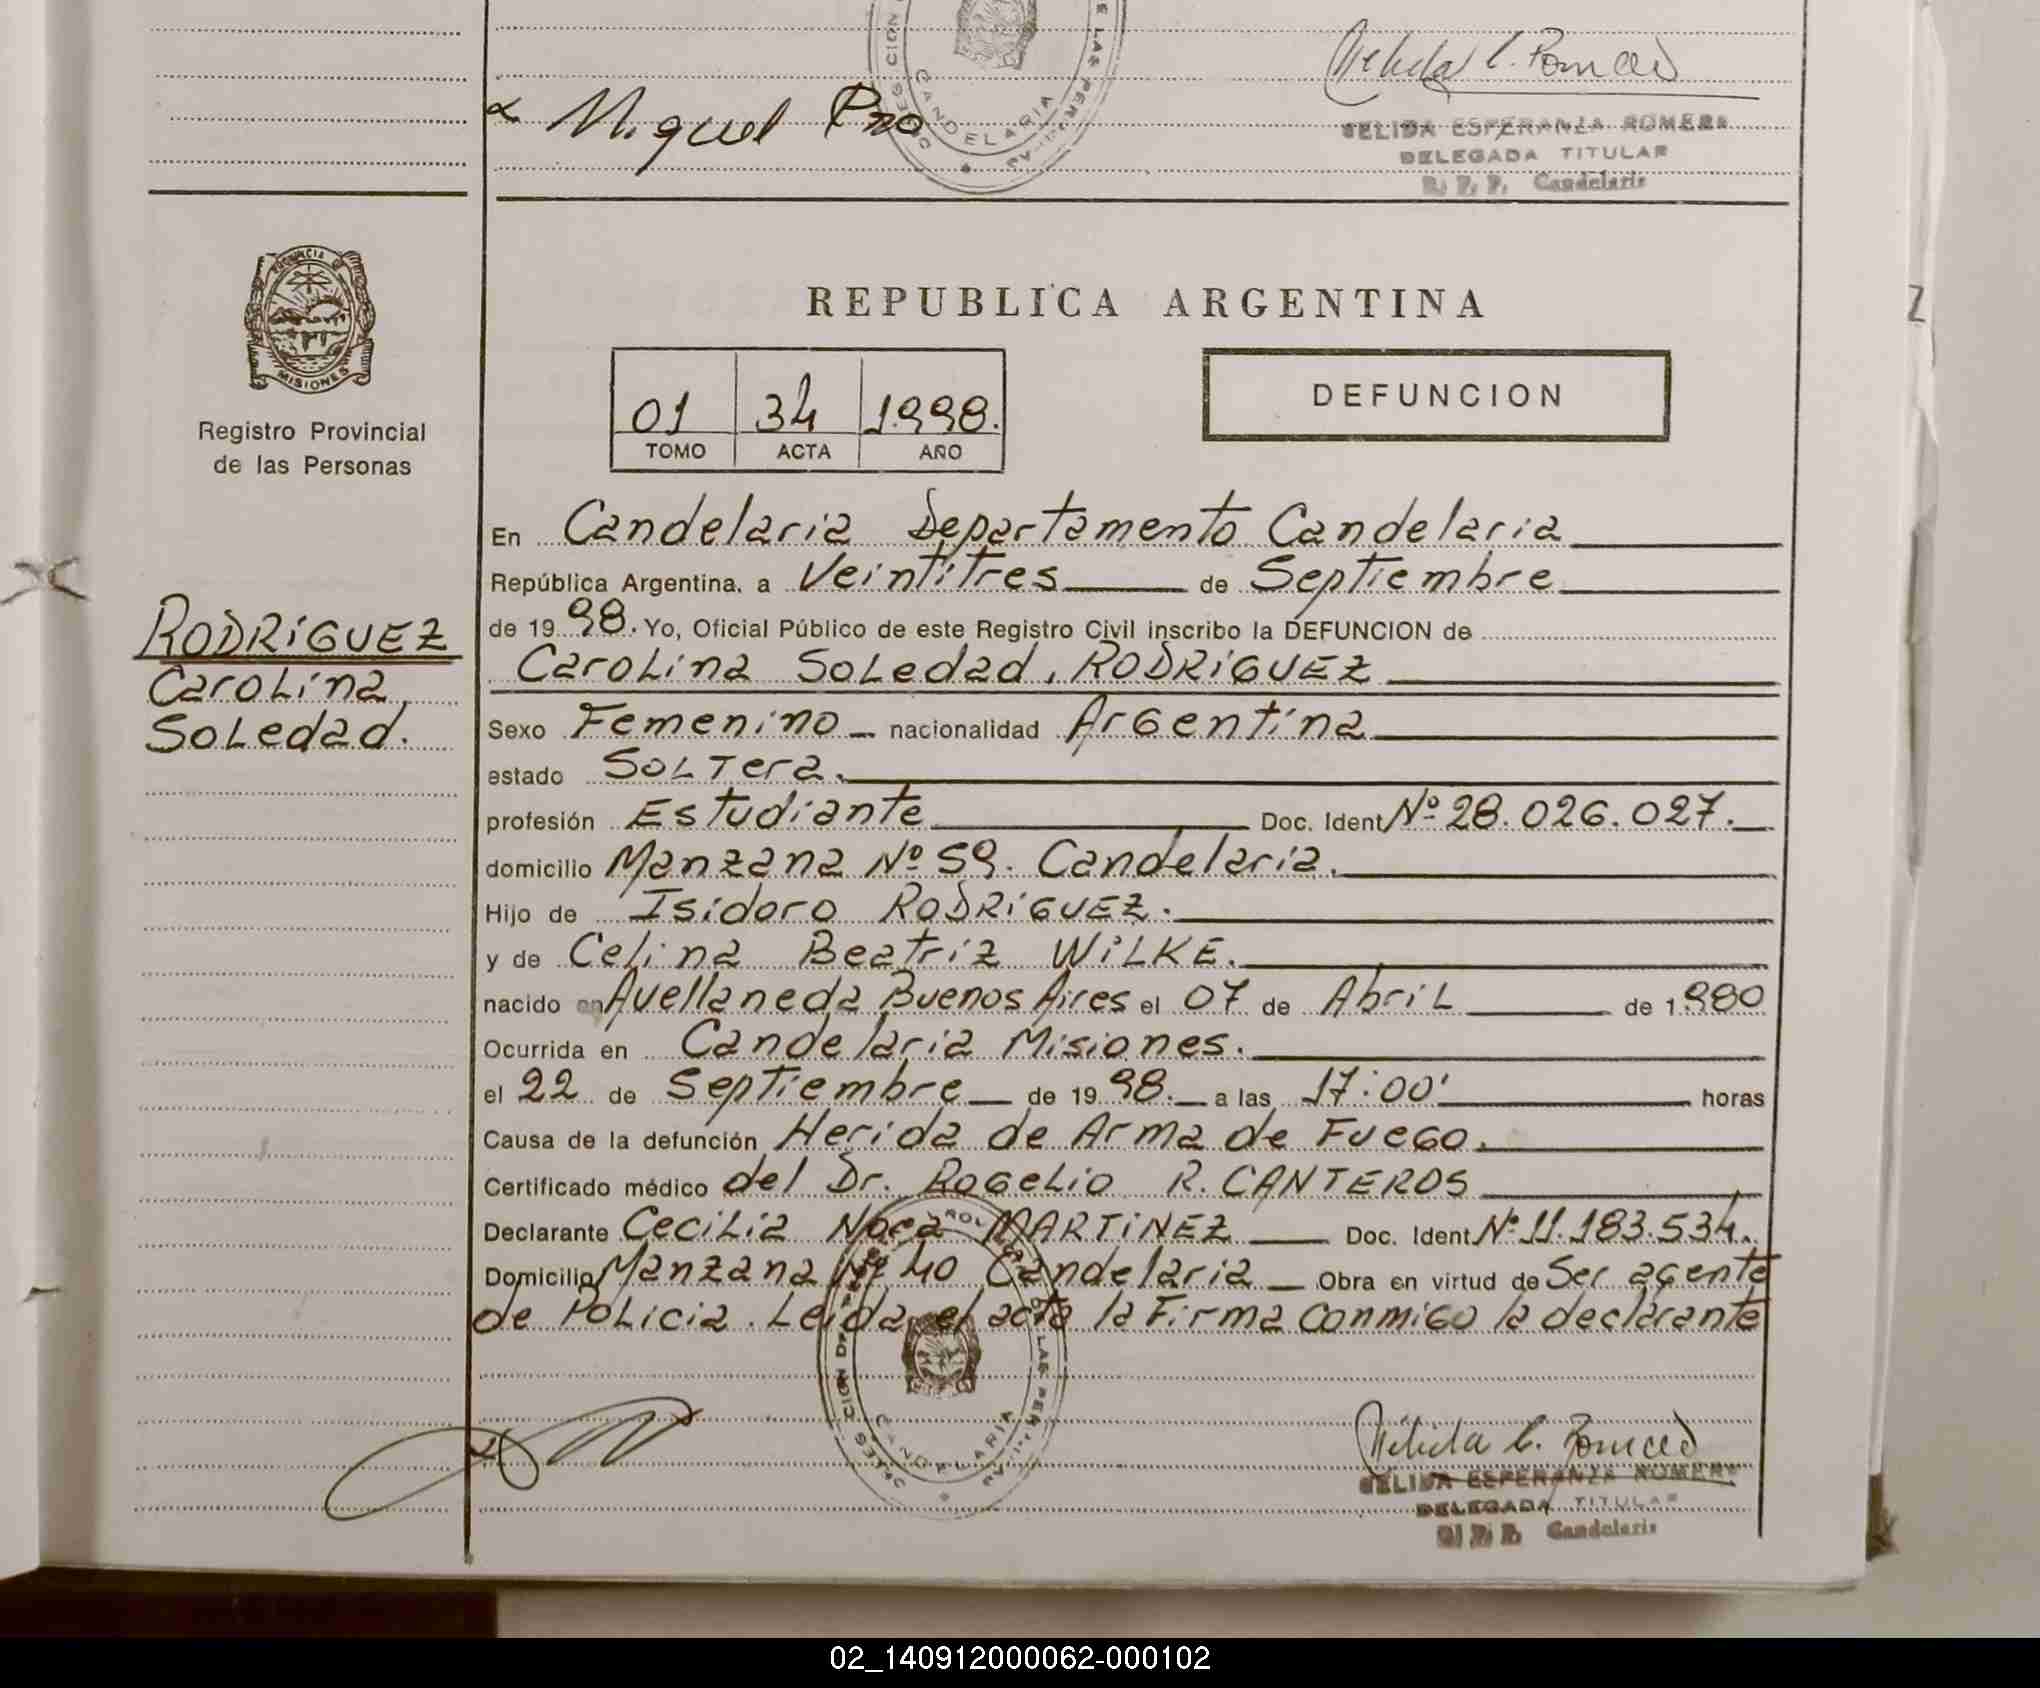 Miguel Pno
CANDELARIA
NELIDA ESPERANZA ROMERO
DELEGADA TITULAR
R. P. P. Candelaria
PROVINCIA DE
MISIONES
Registro Provincial
de las Personas
REPUBLICA ARGENTINA
01 34 1.998.
TOMO ACTA AÑO
DEFUNCION
RODRIGUEZ
Carolina
Soledad.
En Candelaria Departamento Candelaria
República Argentina, a Veintitres de Septiembre
de 19 98. Yo, Oficial Público de este Registro Civil inscribo la DEFUNCION de
Carolina Soledad, RODRIGUEZ
Sexo Femenino nacionalidad Argentina
estado Soltera.
profesión Estudiante Doc. Ident Nº 28.026.027.
domicilio Manzana Nº 59. Candelaria.
Hijo de Isidoro RODRIGUEZ.
y de Celina Beatriz WILKE.
nacido en Avellaneda Buenos Aires el 07 de Abril de 1.980
Ocurrida en Candelaria Misiones.
el 22 de Septiembre de 19 98. a las 17:00' horas
Causa de la defunción Herida de Arma de Fuego.
Certificado médico del Dr. Rogelio R. CANTEROS
Declarante Cecilia MARTINEZ Doc. Ident Nº 11.183.534.
Domicilio Manzana Nº 40 Candelaria Obra en virtud de Ser agente
de Policia. Leida el acta la Firma conmigo la declarante
CANDELARIA
NELIDA ESPERANZA ROMERO
DELEGADA TITULAR
R. P. P. Candelaria
02_140912000062-000102